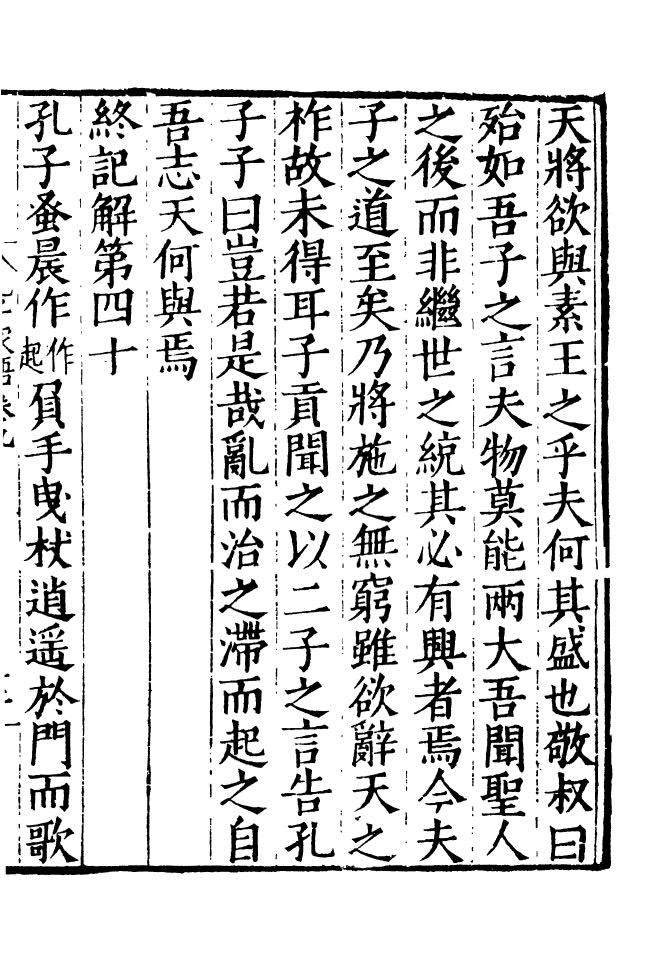 天將欲與素王之乎夫何其盛也敬叔曰
殆如吾子之言夫物莫能兩大吾聞聖人
之後而非繼世之統其必有興者焉今夫
子之道至矣乃將施之無窮雖欲辭天之
祚故未得耳子貢聞之以二子之言告孔
子子曰豈若是哉亂而治之滯而起之自
吾志天何與焉
終記解第四十
孔子蚤晨作作起負手曳杖逍遥於門而歌